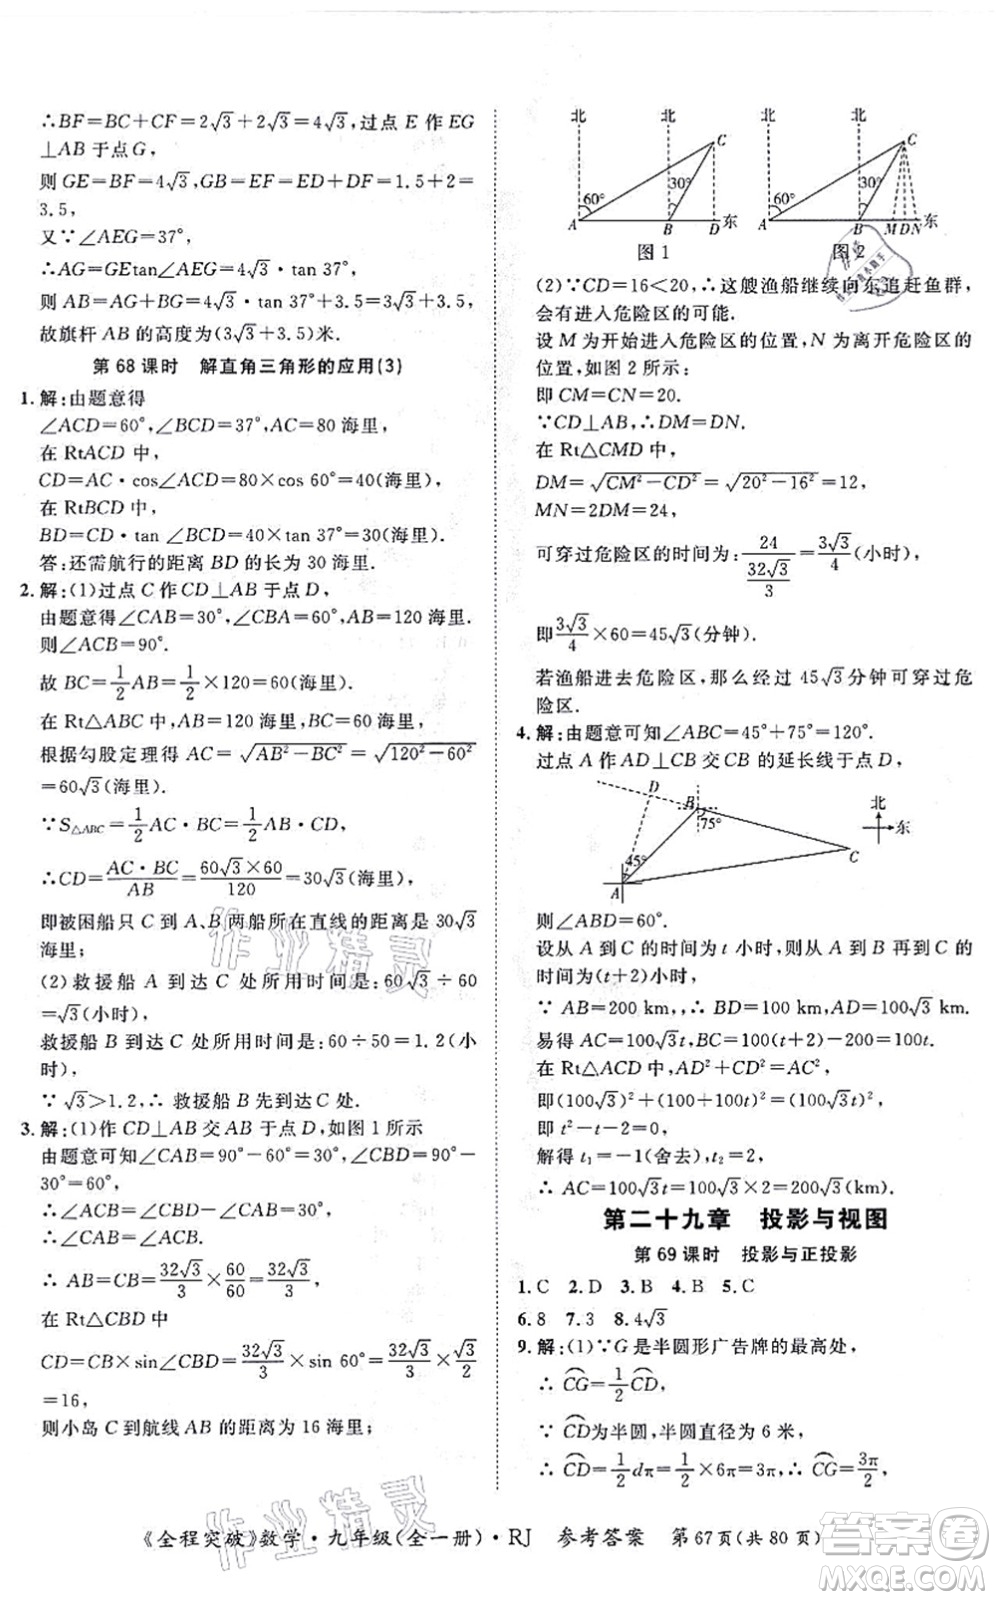 ∴BF=BC+CF=2√3+2√3=4√3,过点 E 作 EG
⊥AB 于点 G,
则 GE=BF=4√3,GB=EF=ED+DF=1.5+2=
3.5,
又∵∠AEG=37°,
∴AG=GEtan∠AEG=4√3·tan 37°=3√3,
则 AB=AG+BG=3√3+3.5=3√3+3.5,
故旗杆 AB 的高度为(3√3+3.5)米.
第 68 课时 解直角三角形的应用(3)
1.解:由题意得
∠ACD=60°,∠BCD=37°,AC=80 海里,
在 RtACD 中,
CD=AC·cos∠ACD=80×cos 60°=40(海里),
在 RtBCD 中,
BD=CD·tan ∠BCD=40×tan 37°=30(海里).
答:还需航行的距离 BD 的长为 30 海里.
2.解:(1)过点 C 作 CD⊥AB 于点 D,
由题意得∠CAB=30°,∠CBA=60°,AB=120 海里.
则∠ACB=90°.
故 BC=1/2 AB=1/2×120=60(海里),
在 Rt△ABC 中,AB=120 海里,BC=60 海里,
根据勾股定理得 AC=√(AB²-BC²)=√(120²-60²)
=60√3(海里).
∵S△ABC=1/2 AC·BC=1/2 AB·CD,
∴CD=(AC·BC)/AB=(60√3×60)/120=30√3(海里),
即被困船只 C 到 A、B 两船所在直线的距离是 30√3
海里;
(2)救援船 A 到达 C 处所用时间是:60√3÷60
=√3(小时),
救援船 B 到达 C 处所用时间是:60÷50=1.2(小
时),
∵√3>1.2,∴救援船 B 先到达 C 处.
3.解:(1)作 CD⊥AB 交 AB 于点 D,如图 1 所示
由题意可知∠CAB=90°-60°=30°,∠CBD=90°-
30°=60°,
∴∠ACB=30°=∠CAB,
∴∠ACB=∠CAB.
∴AB=CB=32√3/3×60/60=32√3/3(海里),
在 Rt△CBD 中,
CD=CB×sin∠CBD=32√3/3×sin 60°=32√3/3×√3/2
=16,
则小岛 C 到航线 AB 的距离为 16 海里;
北 北 C 60° 30° A B D 东
图 1
北 北 C 60° 30° A B M D N 东
图 2
(2)∵CD=16<20,∴这艘渔船继续向东追赶鱼群,
会有进入危险区的可能.
设 M 为开始进入危险区的位置,N 为离开危险区的位
置,如图 2 所示:
即 CM=CN=20.
∵CD⊥AB,∴DM=DN.
在 Rt△CMD 中,
DM=√(CM²-CD²)=√(20²-16²)=12,
MN=2DM=24,
可穿过危险区的时间为:24/(32√3/3)=3√3/4(小时),
即3√3/4×60=45√3(分钟).
若渔船进去危险区,那么经过 45√3 分钟可穿过危
险区.
4.解:由题意可知∠ABC=45°+75°=120°.
过点 A 作 AD⊥CB 交 CB 的延长线于点 D,
D B 75° 45° A C 北 东
则∠ABD=60°.
设从 A 到 C 的时间为 t 小时,则从 A 到 B 再到 C 的
时间为(t+2)小时,
∵AB=200 km,,∴BD=100 km,AD=100√3 km.
易得 AC=100√3t,BC=100t.
在 Rt△ACD 中,AD²+CD²=AC²,
即(100√3)²+(100+100t)²=(100√3t)²,
即 t²-t-2=0,
解得 t₁=-1(舍去),t₂=2,
∴AC=100√3t=100√3×2=200√3(km).
第二十九章 投影与视图
第 69 课时 投影与正投影
1.C 2.D 3.B 4.B 5.C
6.8 7.3 8.4√3
9.解:(1)∵G 是半圆形广告牌的最高处,
∴C͡G=1/2 C͡D,
∵C͡D为半圆,半圆直径为 6 米,
∴C͡D=1/2 dπ=1/2×6π=3π(米),∴C͡G=3π/2
《全程突破》数学·九年级(全一册)·RJ 参考答案 第 67 页(共 80 页)
作业精灵
作业精灵
作业精灵
MXQE.COM